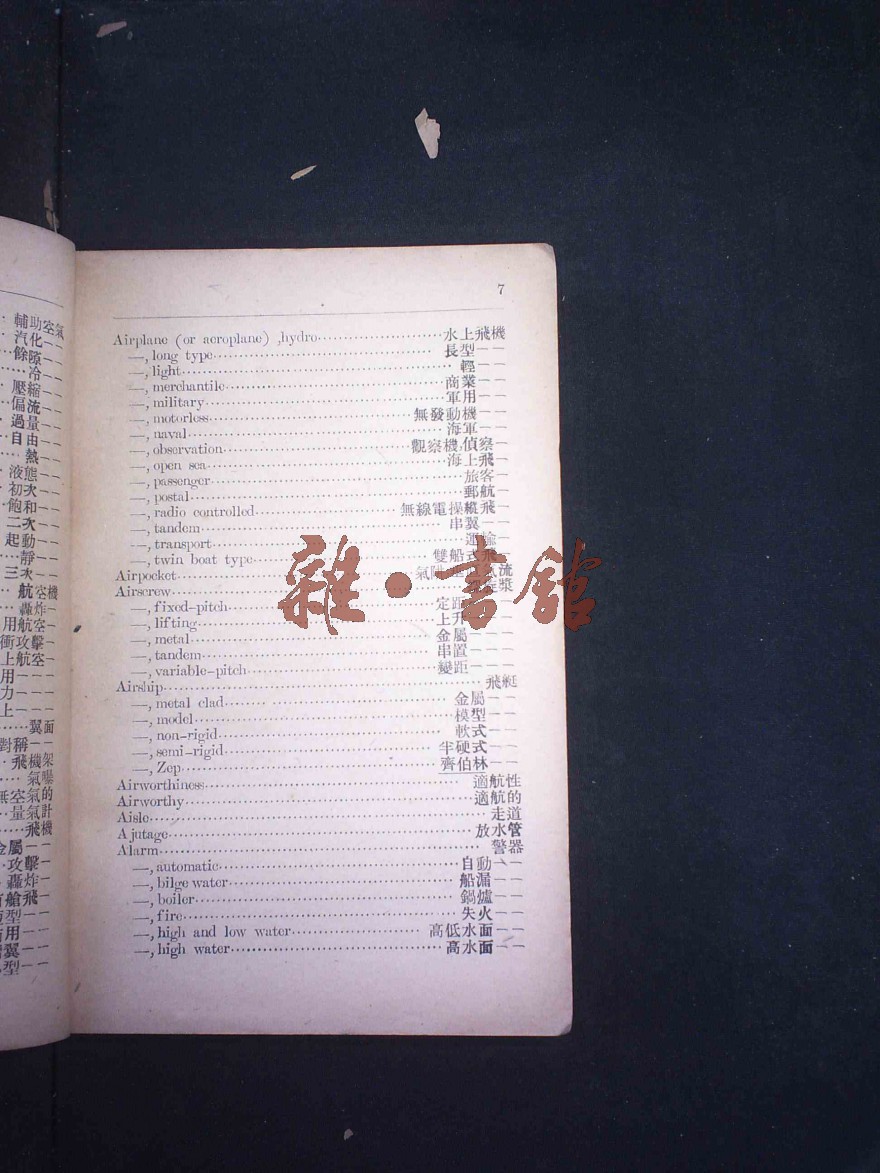 輔助空氣
汽化——
餘隙—
冷—
壓縮—
偏流—
過量—
自由—
熱—
液態—
初次—
飽和—
二次—
起動—
靜—
三次—
航空機
轟炸—
用航空—
衝攻擊—
上航空—
用———
力———
上———
翼面
對稱——
飛機架
氣曝
無空氣的
量氣計
飛機
金屬——
攻擊—
轟炸—
艙飛—
型——
用——
翼——
型——
7
Airplane (or aeroplane) ,hydro 水上飛機
—, long type 長型——
—, light 輕——
—, merchantile 商業——
—, military 軍用——
—, motorless 無發動機——
—, naval 海軍——
—, observation 觀察機,偵察—
—, open sea 海上飛—
—, passenger 旅客—
—, postal 郵航—
—, radio controlled 無線電操縱飛—
—, tandem 串翼——
—, transport 運輸——
—, twin boat type 雙船式飛—
Airpocket 氣 流
Airscrew 漿
—, fixed-pitch 定距
—, lifting 上升
—, metal 金屬———
—, tandem 串置———
—, variable-pitch 變距———
Airship 飛艇
—, metal clad 金屬——
—, model 模型——
—, non-rigid 軟式——
—, semi-rigid 半硬式——
—, Zep 齊伯林——
Airworthiness 適航性
Airworthy 適航的
Aisle 走道
Ajutage 放水管
Alarm 警器
—, automatic 自動——
—, bilge water 船漏——
—, boiler 鍋爐——
—, fire 失火——
—, high and low water 高低水面——
—, high water 高水面——
雜·書館